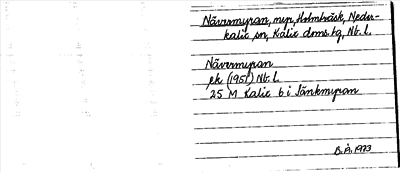 Nävermyran, myr, Holmträsk, Neder-
kalix sn, Kalix doms.tg, Nb. l.
Nävermyran
ek (1957) Nb. l.
25 M Kalix 6 i Sänkmyran
B.Å. 1973